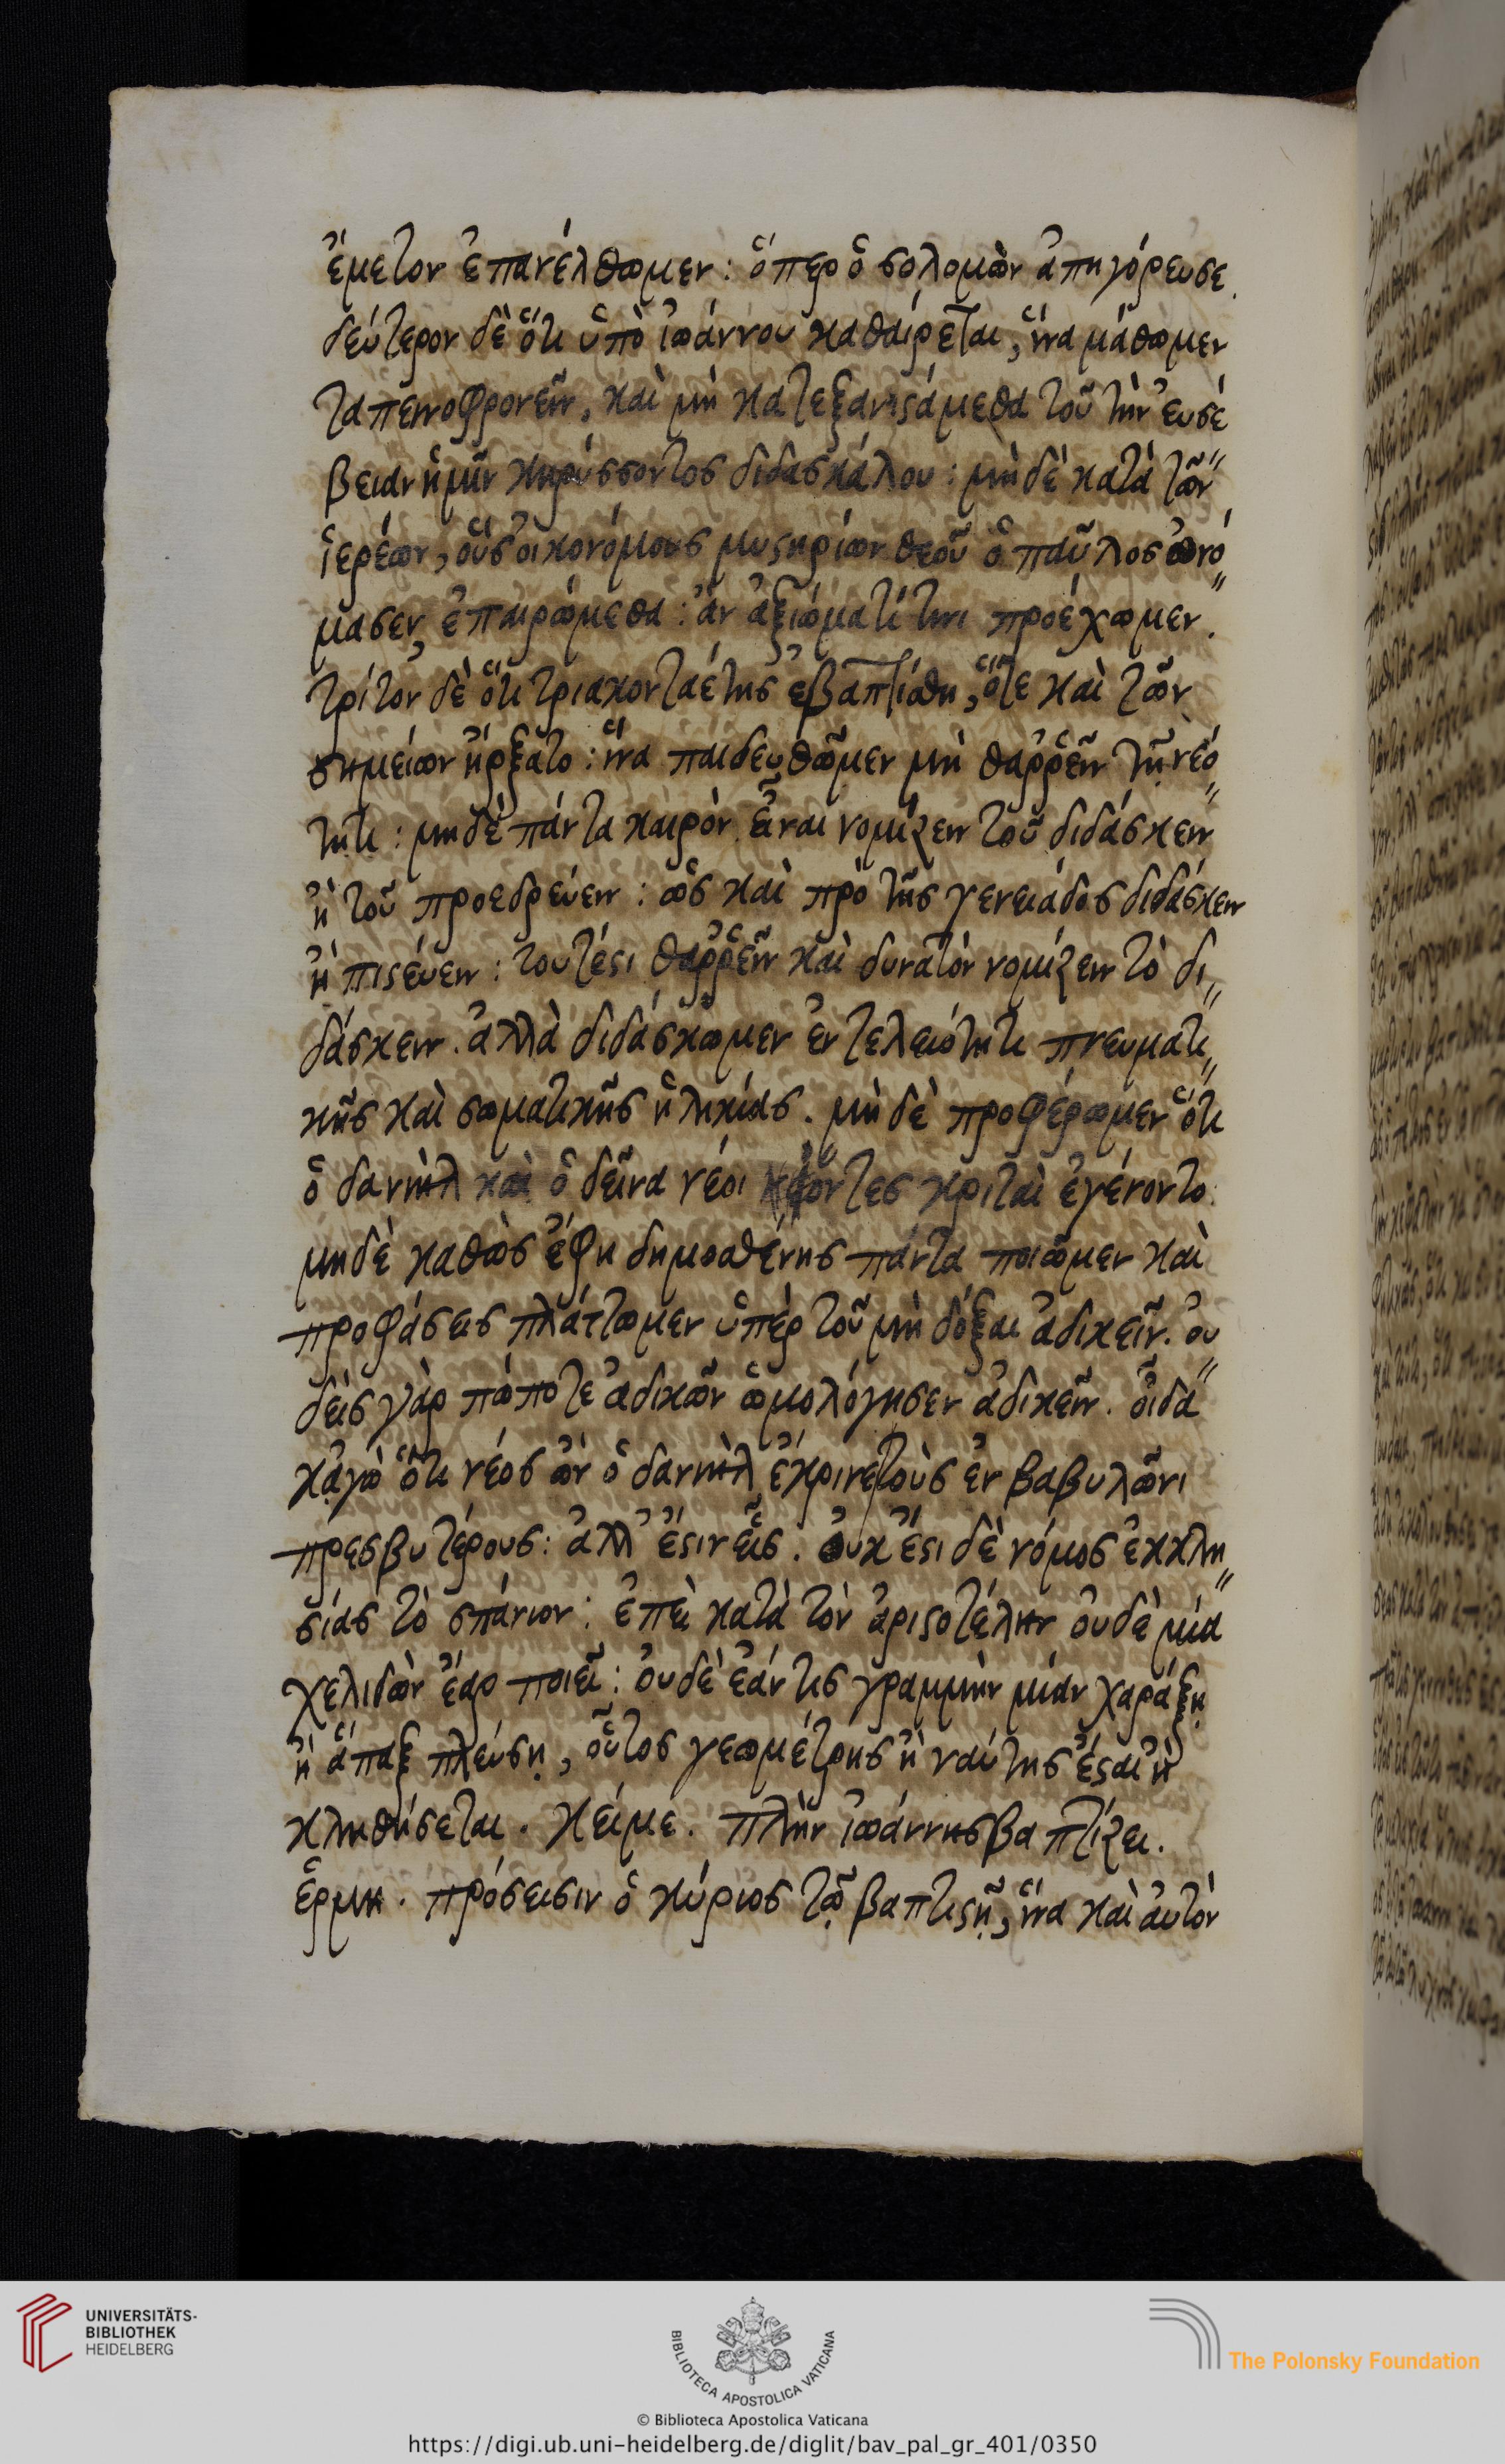 ἔμετον ἐπανέλθωμεν: ὅπερ ὁ σολομὼν ἀπηγόρευσε.
δεύτερον δὲ ὅτι ὑπὸ ἰωάννου καθαίρεται, ἵνα μάθωμεν
ταπεινοφρονεῖν, καὶ μὴ κατεξανιστάμεθα τοῦ τὴν ἐυσέ
βειαν ἡμῖν κηρύσσοντος διδασκάλου: μὴ δὲ κατὰ τῶν
ἱερέων, οὓς οἰκονόμους μυστηρίων θεοῦ ὁ παῦλος ὠνό
μασεν, ἐπαιρώμεθα: ἂν ἀξιώματί τινι προέχωμεν.
τρίτον δὲ ὅτι τριακονταέτης ἐβαπτίσθη, ὅτε καὶ τῶν
σημείων ἤρξατο: ἵνα παιδευθῶμεν μὴ θαῤῥεῖν τῇ νεό
τητι: μηδὲ πάντα καιρὸν εἶναι νομίζειν τοῦ διδάσκειν
ἢ τοῦ προεδρεύειν: ὡς καὶ πρὸ τῆς γενειάδος διδάσκειν
ἢ πιστεύειν: τουτέστι θαῤῥεῖν καὶ δυνατὸν νομίζειν τὸ δι
δάσκειν. ἀλλὰ διδάσκωμεν ἐν τελειότητι πνευματι
κῆς καὶ σωματικῆς ἡλικίας. μὴ δὲ προφέρωμεν ὅτι
ὁ δανιὴλ καὶ ὁ δεῖνα νέοι ὄντες κριταὶ ἐγένοντο:
μηδὲ καθὼς ἔφη δημοσθένης πάντα ποιῶμεν καὶ
προφάσεις πλάττωμεν ὑπὲρ τοῦ μὴ δόξαι ἀδικεῖν. ὀυ
δεὶς γὰρ πώποτε ἀδικῶν ὡμολόγησεν ἀδικεῖν. οἶδα
κἀγὼ ὅτι νέος ὢν ὁ δανιὴλ ἔκρινε τοὺς ἐν βαβυλῶνι
πρεσβυτέρους: ἀλλ' ἔστιν εἷς. ὀυκ ἔστι δὲ νόμος ἐκκλη
σίας τὸ σπάνιον: ἐπεὶ κατὰ τὸν ἀριστοτέλην ὀυδὲ μία
χελιδὼν ἔαρ ποιεῖ: ὀυδὲ ἐάν τις γραμμὴν μίαν χαράξῃ
ἢ ἅπαξ πλεύσῃ, οὗτος γεωμέτρης ἢ ναύτης ἔσται ἢ
κληθήσεται. κείμε. πλὴν ἰωάννης βαπτίζει.
ἑρμη. πρόσεισιν ὁ κύριος τῷ βαπτιστῇ, ἵνα καὶ ἀυτὸν
UNIVERSITÄTS-
BIBLIOTHEK
HEIDELBERG
BIBLIOTECA APOSTOLICA VATICANA
The Polonsky Foundation
© Biblioteca Apostolica Vaticana
https://digi.ub.uni-heidelberg.de/diglit/bav_pal_gr_401/0350